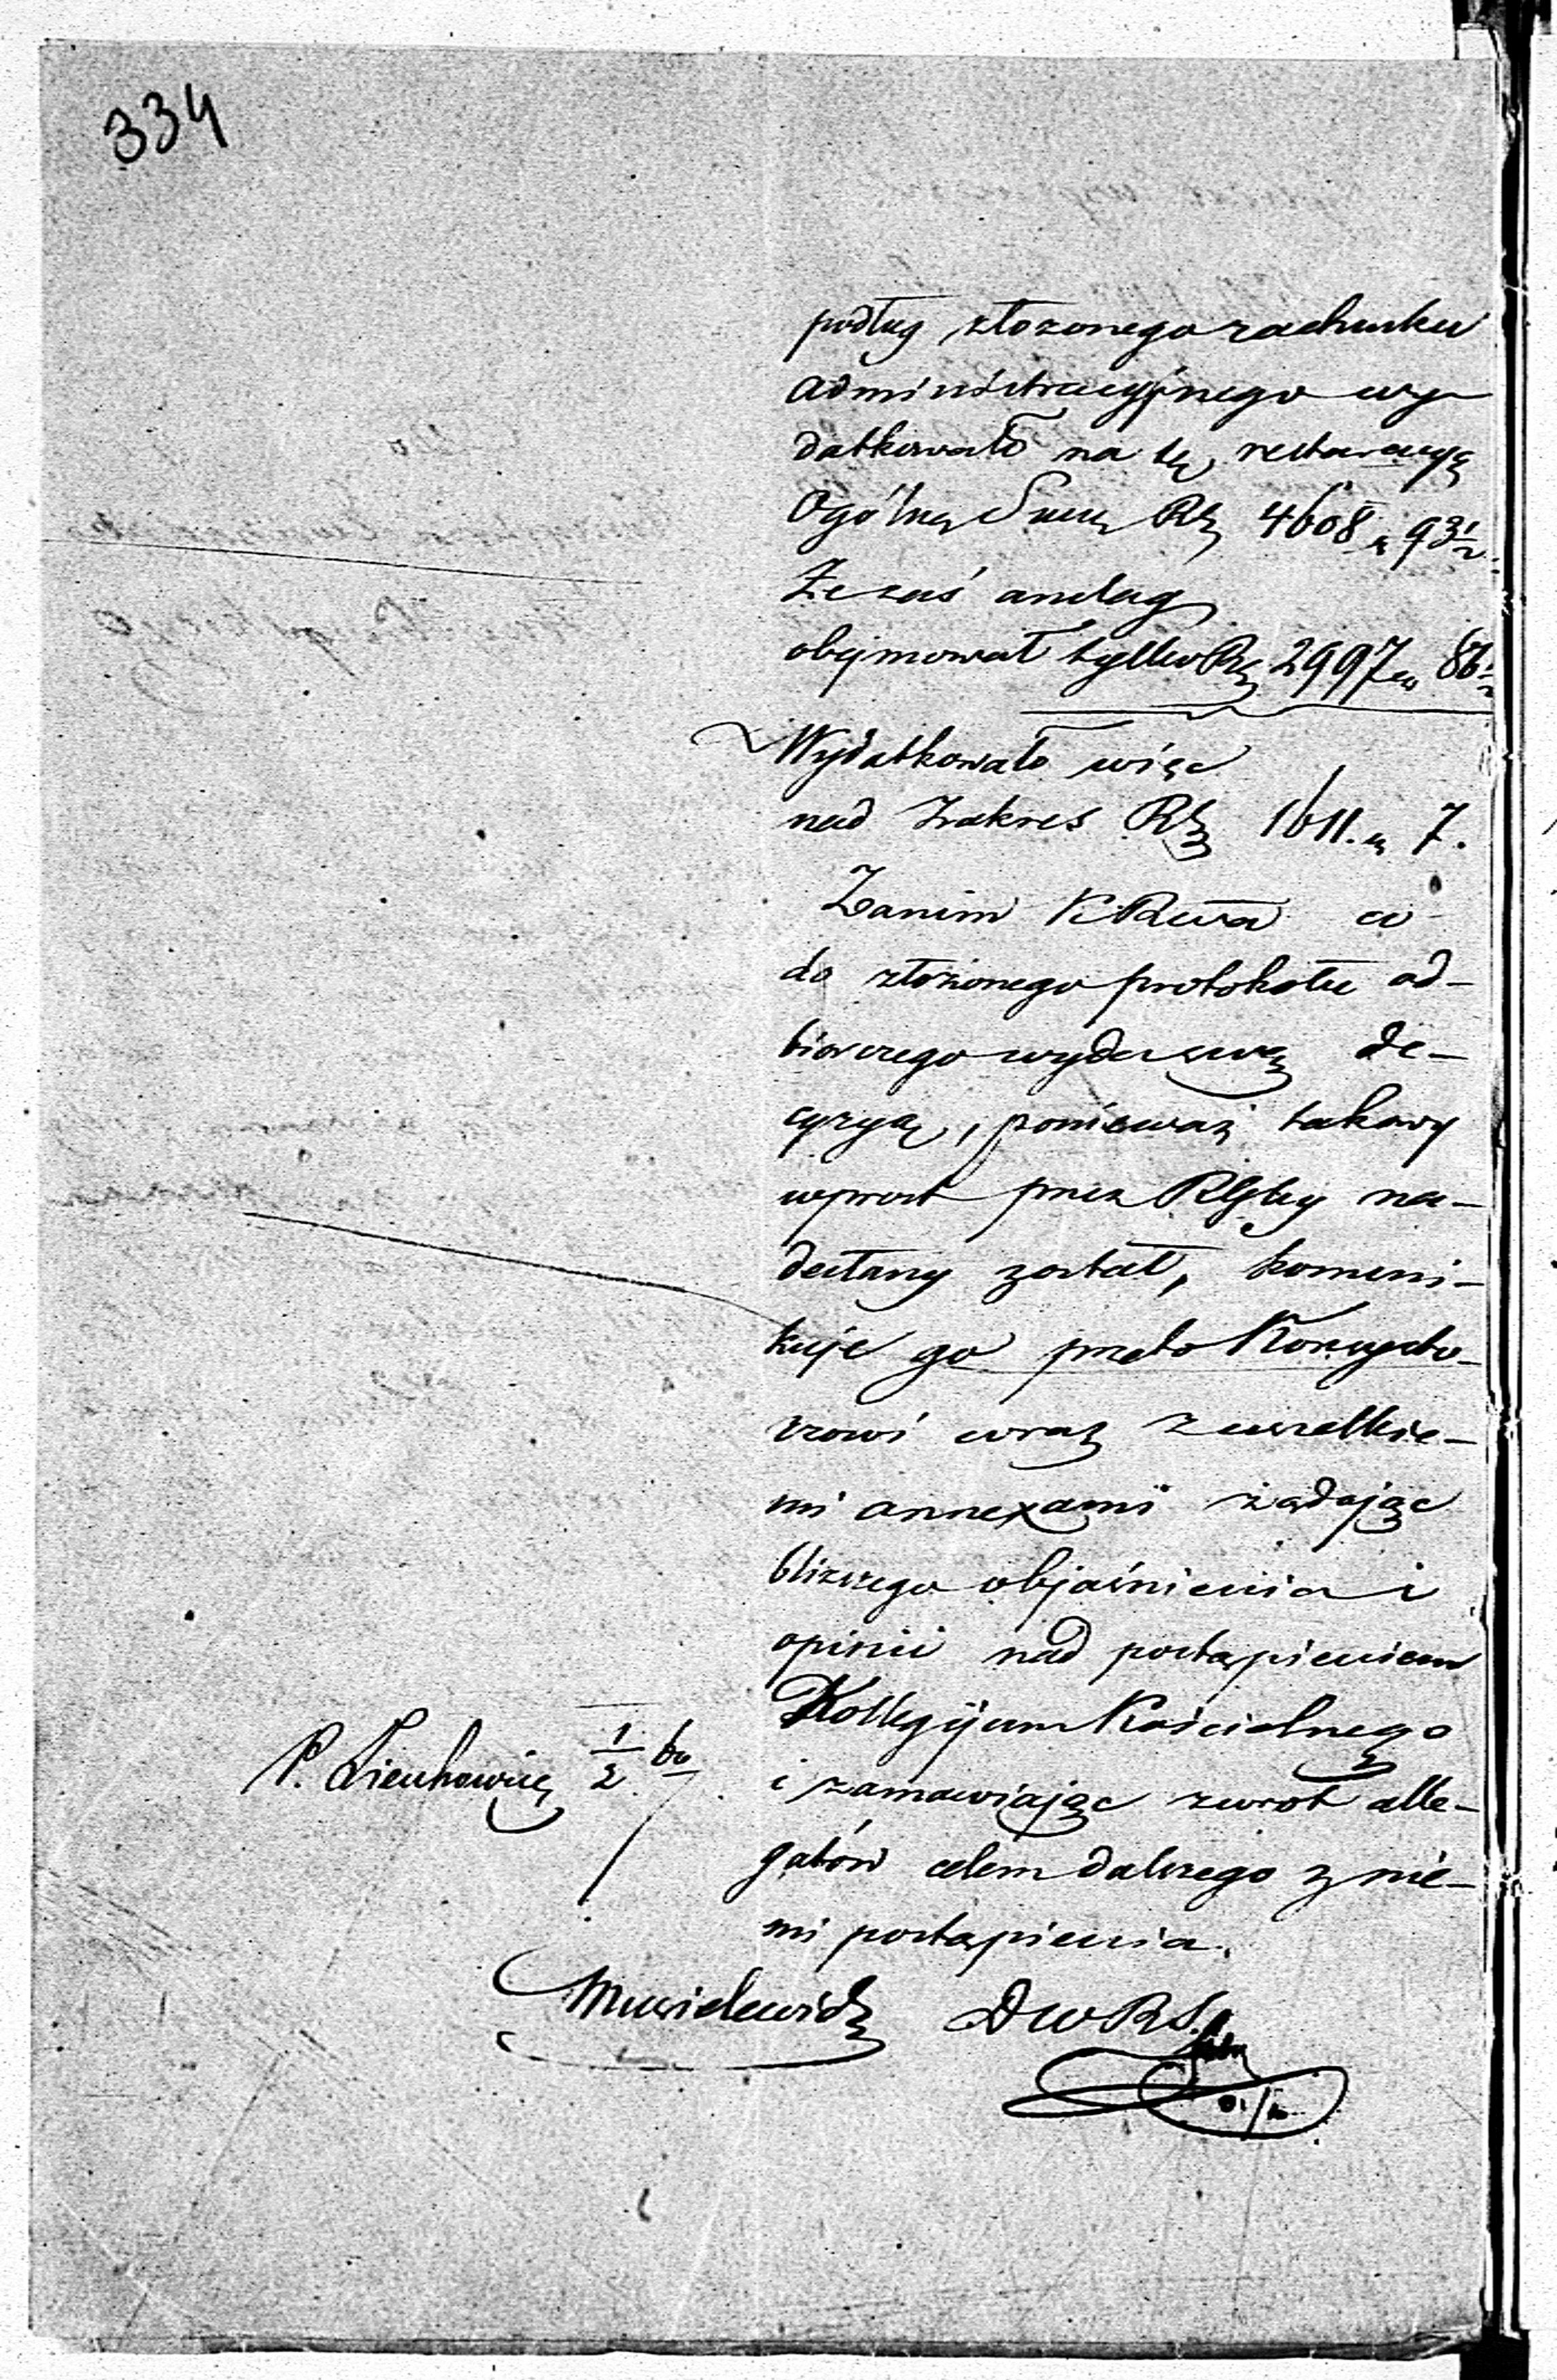 334
podług złożonego rachunku
administracyjnego wy-
datkowało na tę restauracyą
Ogólną Sumę Rs 4608 k 93½
Że zaś anszlag
obejmował tylko Rs 2997 k 86½
Wydatkowało więc
nad zakres Rs 1611. k 7.
Zanim KR
do złożonego protokołu od-
biorczego wyda swą de-
cyzyą, ponieważ takowy
wprost przez RGbny na-
desłany został, komuni-
kuje go przeto Konsysto-
rzowi wraz z wszelkie-
mi annexami żądając
bliższego objaśnienia i
opinii nad postąpieniem
Kollegijum Kościelnego
i zamawiając zwrot alle-
gatów celem dalszego z nie-
mi postąpienia.
P. 1/2
DWRS.